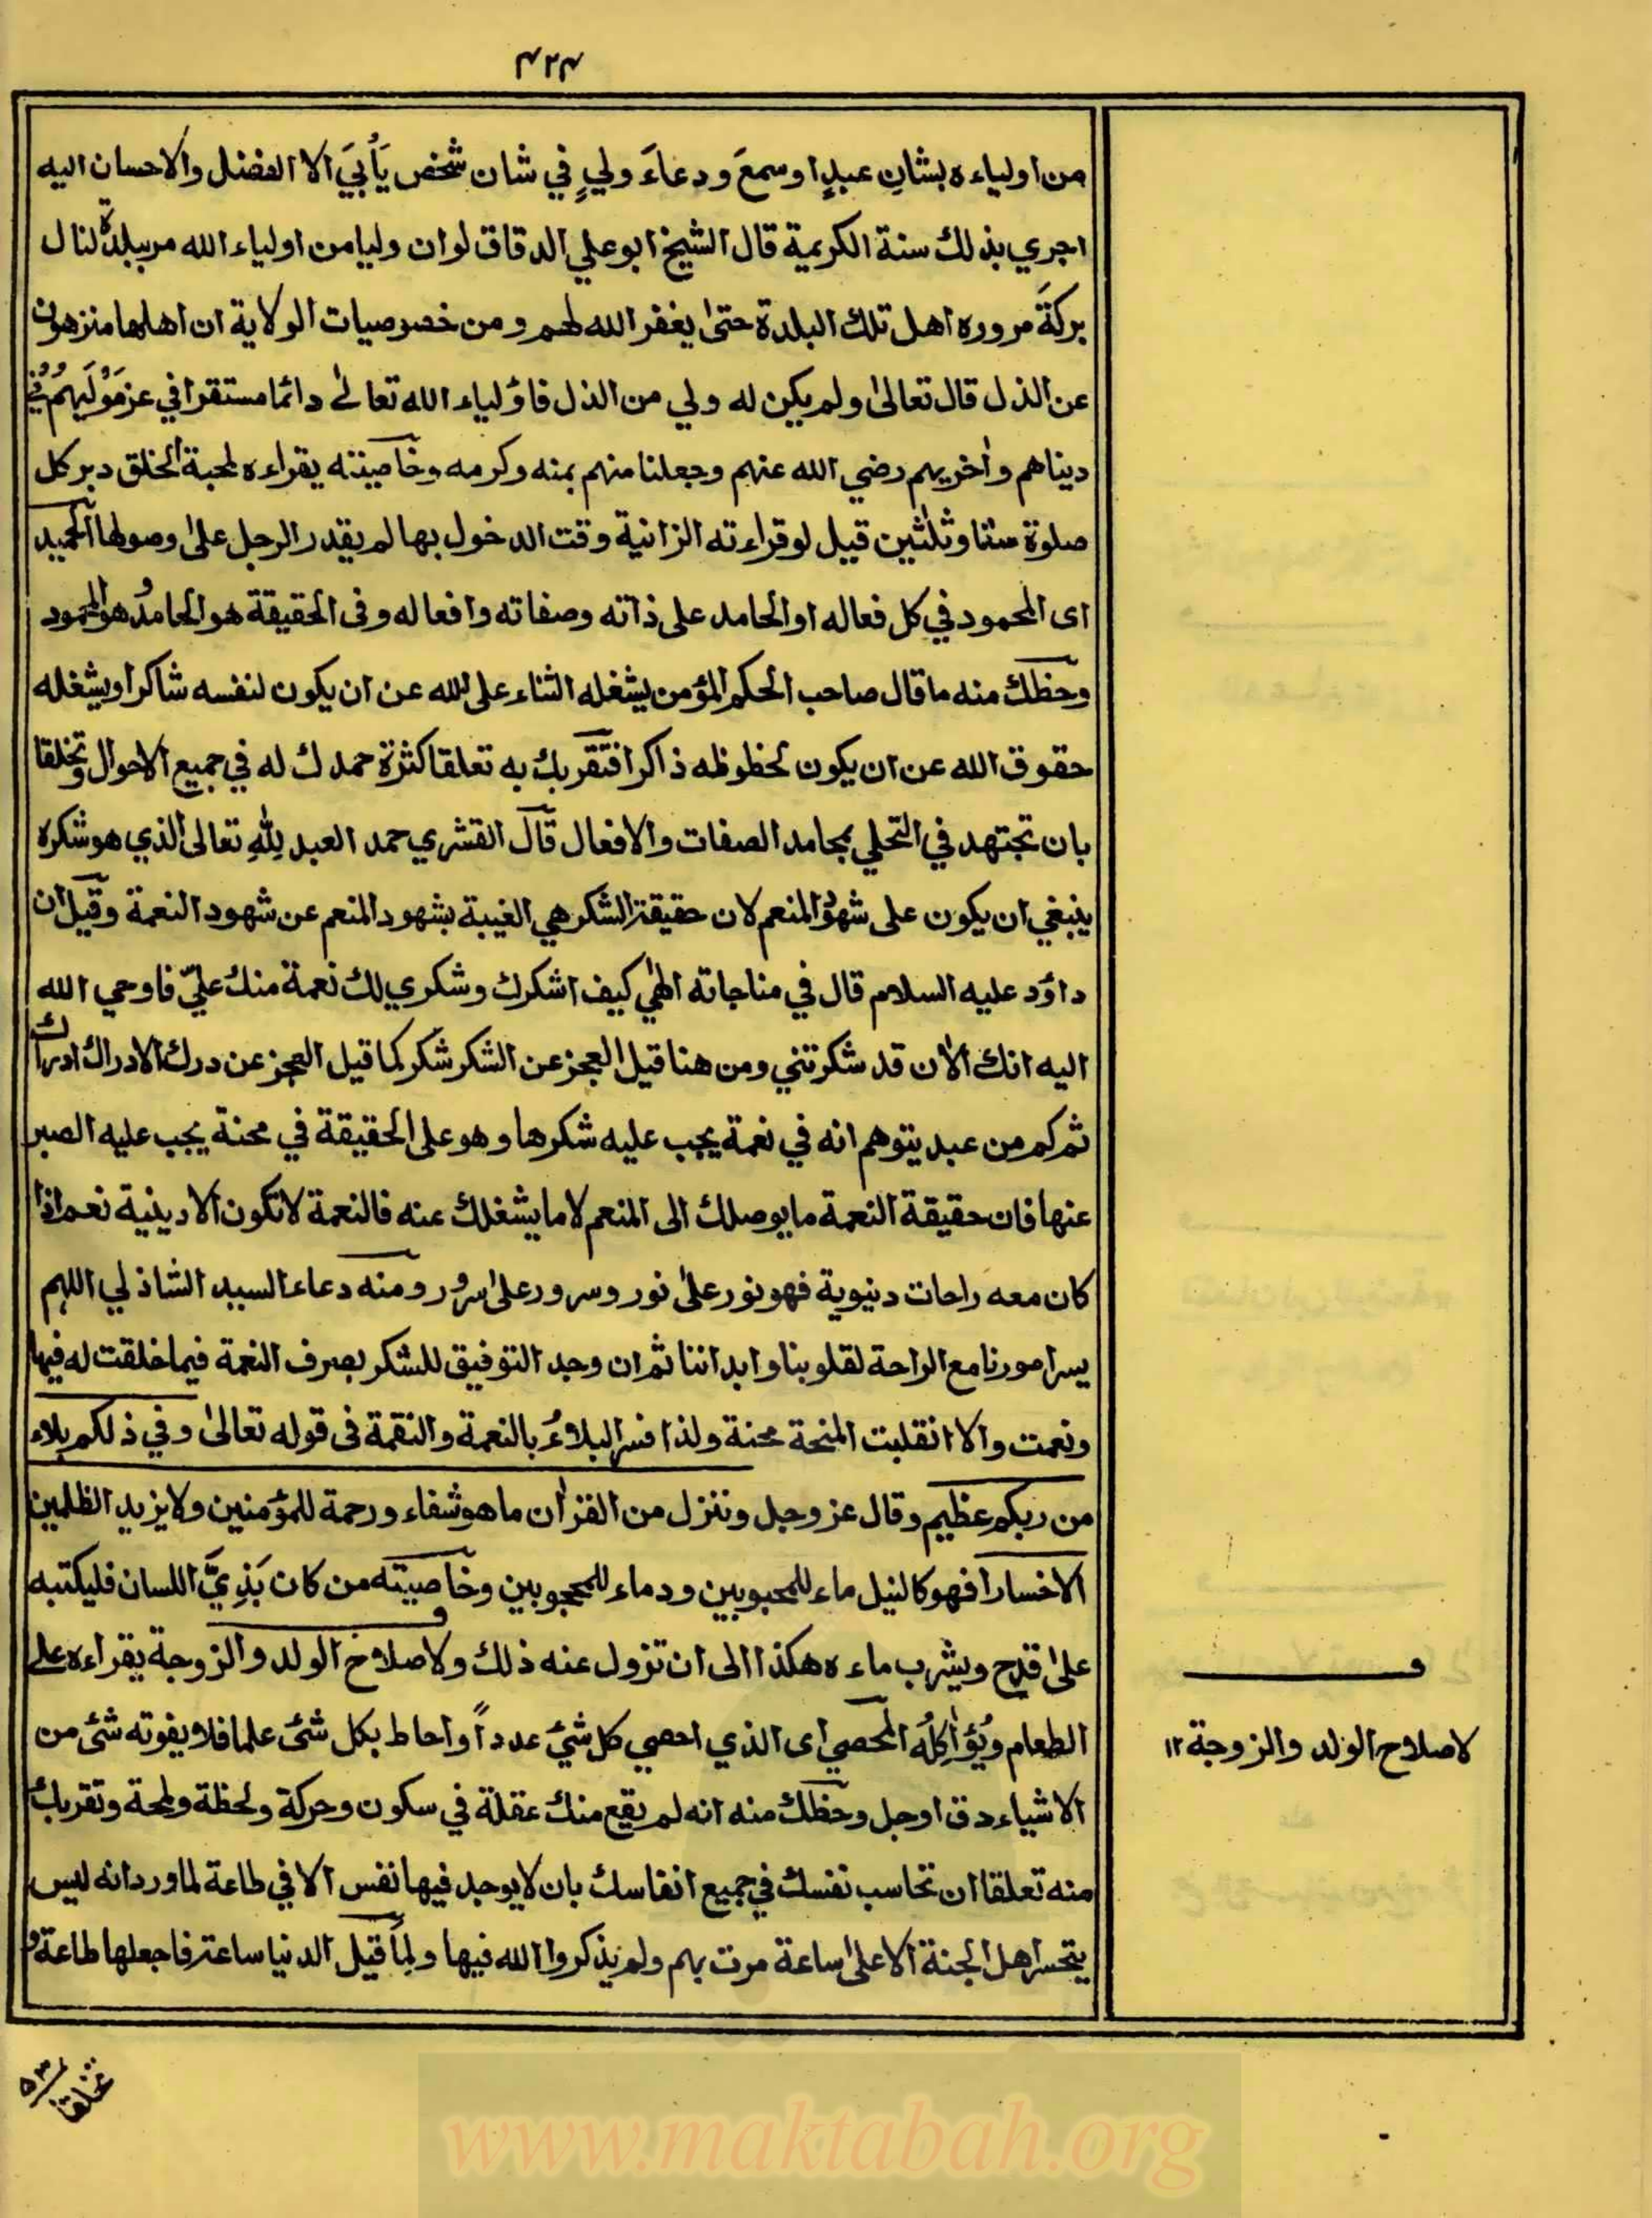 ۴۲۴
من اولياءه بشانِ عبدٍ او سمعَ ودعاءَ وليٍ في شان شخص يأبيَ الا الفضل والاحسان اليه
اجري بذلك سنة الكريمية قال الشيخ ابو علي الدقاق لو ان وليا من اولياء الله مر ببلدة لنال
بركةَ مروره اهل تلك البلدة حتىٰ يغفر الله لهم ومن خصوصيات الولاية ان اهلها منزهون
عن الذل قال تعالىٰ ولم يكن له ولي من الذل فاؤلياء الله تعالىٰ دائما مستقرا في عز مَوْلَيهُم في
ديناهم واُخريهم رضي الله عنهم وجعلنا منهم بمنه وكرمه وخاصيته يقراءه لمحبة الخلق دبر كل
صلوة ستا وثلٰثين قيل لو قراءته الزانية وقت الدخول بها لم يقدر الرجل علىٰ وصولها الحميد
اى المحمود في كل فعاله او الحامد على ذاته وصفاته وافعاله وفى الحقيقة هو الحامدُ هو المحمود
وحظك منه ما قال صاحب الحكم المؤمن يشغله الثناء على الله عن ان يكون لنفسه شاكرا ويشغله
حقوق الله عن ان يكون لحظوظه ذاكرا فتقربك به تعلقا كثرة حمدك له في جميع الاحوال وتخلقا
بان تجتهد في التحلي بمحامد الصفات والافعال قال القشري حمد العبد لِلّٰهِ تعالى الذي هو شكره
ينبغي ان يكون على شهود المنعم لان حقيقة الشكر هي الغيبة بشهود المنعم عن شهود النعمة وقيل ان
داؤد عليه السلام قال في مناجاته الٰهي كيف اشكرك وشكري لك نعمة منك عليّ فاوحي الله
اليه انك الاٰن قد شكرتني ومن هنا قيل العجز عن الشكر شكر كما قيل العجز عن درك الادراك ادراك
ثم كم من عبد يتوهم انه في نعمة يجب عليه شكرها وهو على الحقيقة في محنة يجب عليه الصبر
عنها فان حقيقة النعمة ما يوصلك الى المنعم لا ما يشغلك عنه فالنعمة لا تكون الا دينية نعم اذا
كان معه راحات دنيوية فهو نور علىٰ نور وسرور علىٰ سرور ومنه دعاء السيد الشاذلي اللهم
يسر امورنا مع الراحة لقلوبنا وابداننا ثم ان وجد التوفيق للشكر بصرف النعمة فيما خلقت له فبها
ونعمت والا انقلبت المنحة محنة ولذا فسر البلاءُ بالنعمة والنقمة فى قوله تعالىٰ وفي ذلكم بلاء
من ربكم عظيم وقال عز وجل وننزل من القراٰن ما هو شفاء ورحمة للمؤمنين ولا يزيد الظلمين
الا خسارا فهو كالنيل ماء للمحبوبين ودماء للمحجوبين وخاصيته من كان بَذِيَّ اللسان فليكتبه
علىٰ قدح ويشرب ماءه هكذا الى ان تزول عنه ذلك ولاصلاح الولد والزوجة يقراءه على
الطعام ويُؤاكلُه المحصي اى الذي احصي كل شيْ عدداً واحاط بكل شئ علما فلا يفوته شئ من
الاشياء دق او جل وحظك منه انه لم يقع منك عقلة في سكون وحركة ولحظة ولمحة وتقربك
منه تعلقا ان تحاسب نفسك في جميع انفاسك بان لا يوجد فيها نفس الا في طاعة لما ورد انه ليس
يتحسر اهل الجنة الا على ساعة مرت بهم ولم يذكروا الله فيها ولما قيل الدنيا ساعة فاجعلها طاعة و
ف
لاصلاح الولد والزوجة ۱۲
تخلقا
www.maktabah.org